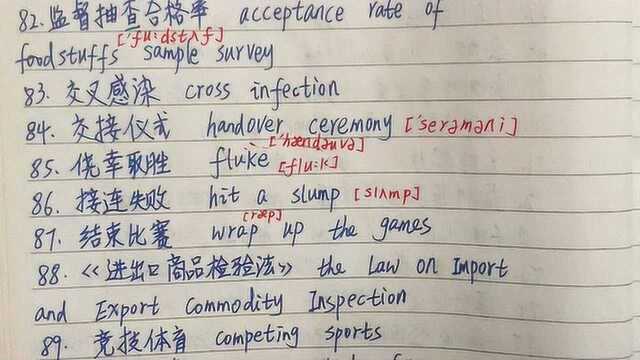 82.监督抽查合格率 acceptance rate of
['fu:dstʌf]
foodstuffs sample survey
83. 交叉感染 cross infection
84. 交接仪式 handover ceremony ['serəməni]
['hændəuvə]
85. 侥幸取胜 fluke [flu:k]
86. 接连失败 hit a slump [slʌmp]
[ræp]
87. 结束比赛 wrap up the games
88.《进出口商品检验法》 the Law on Import
and Export Commodity Inspection
89. 竞技体育 competing sports